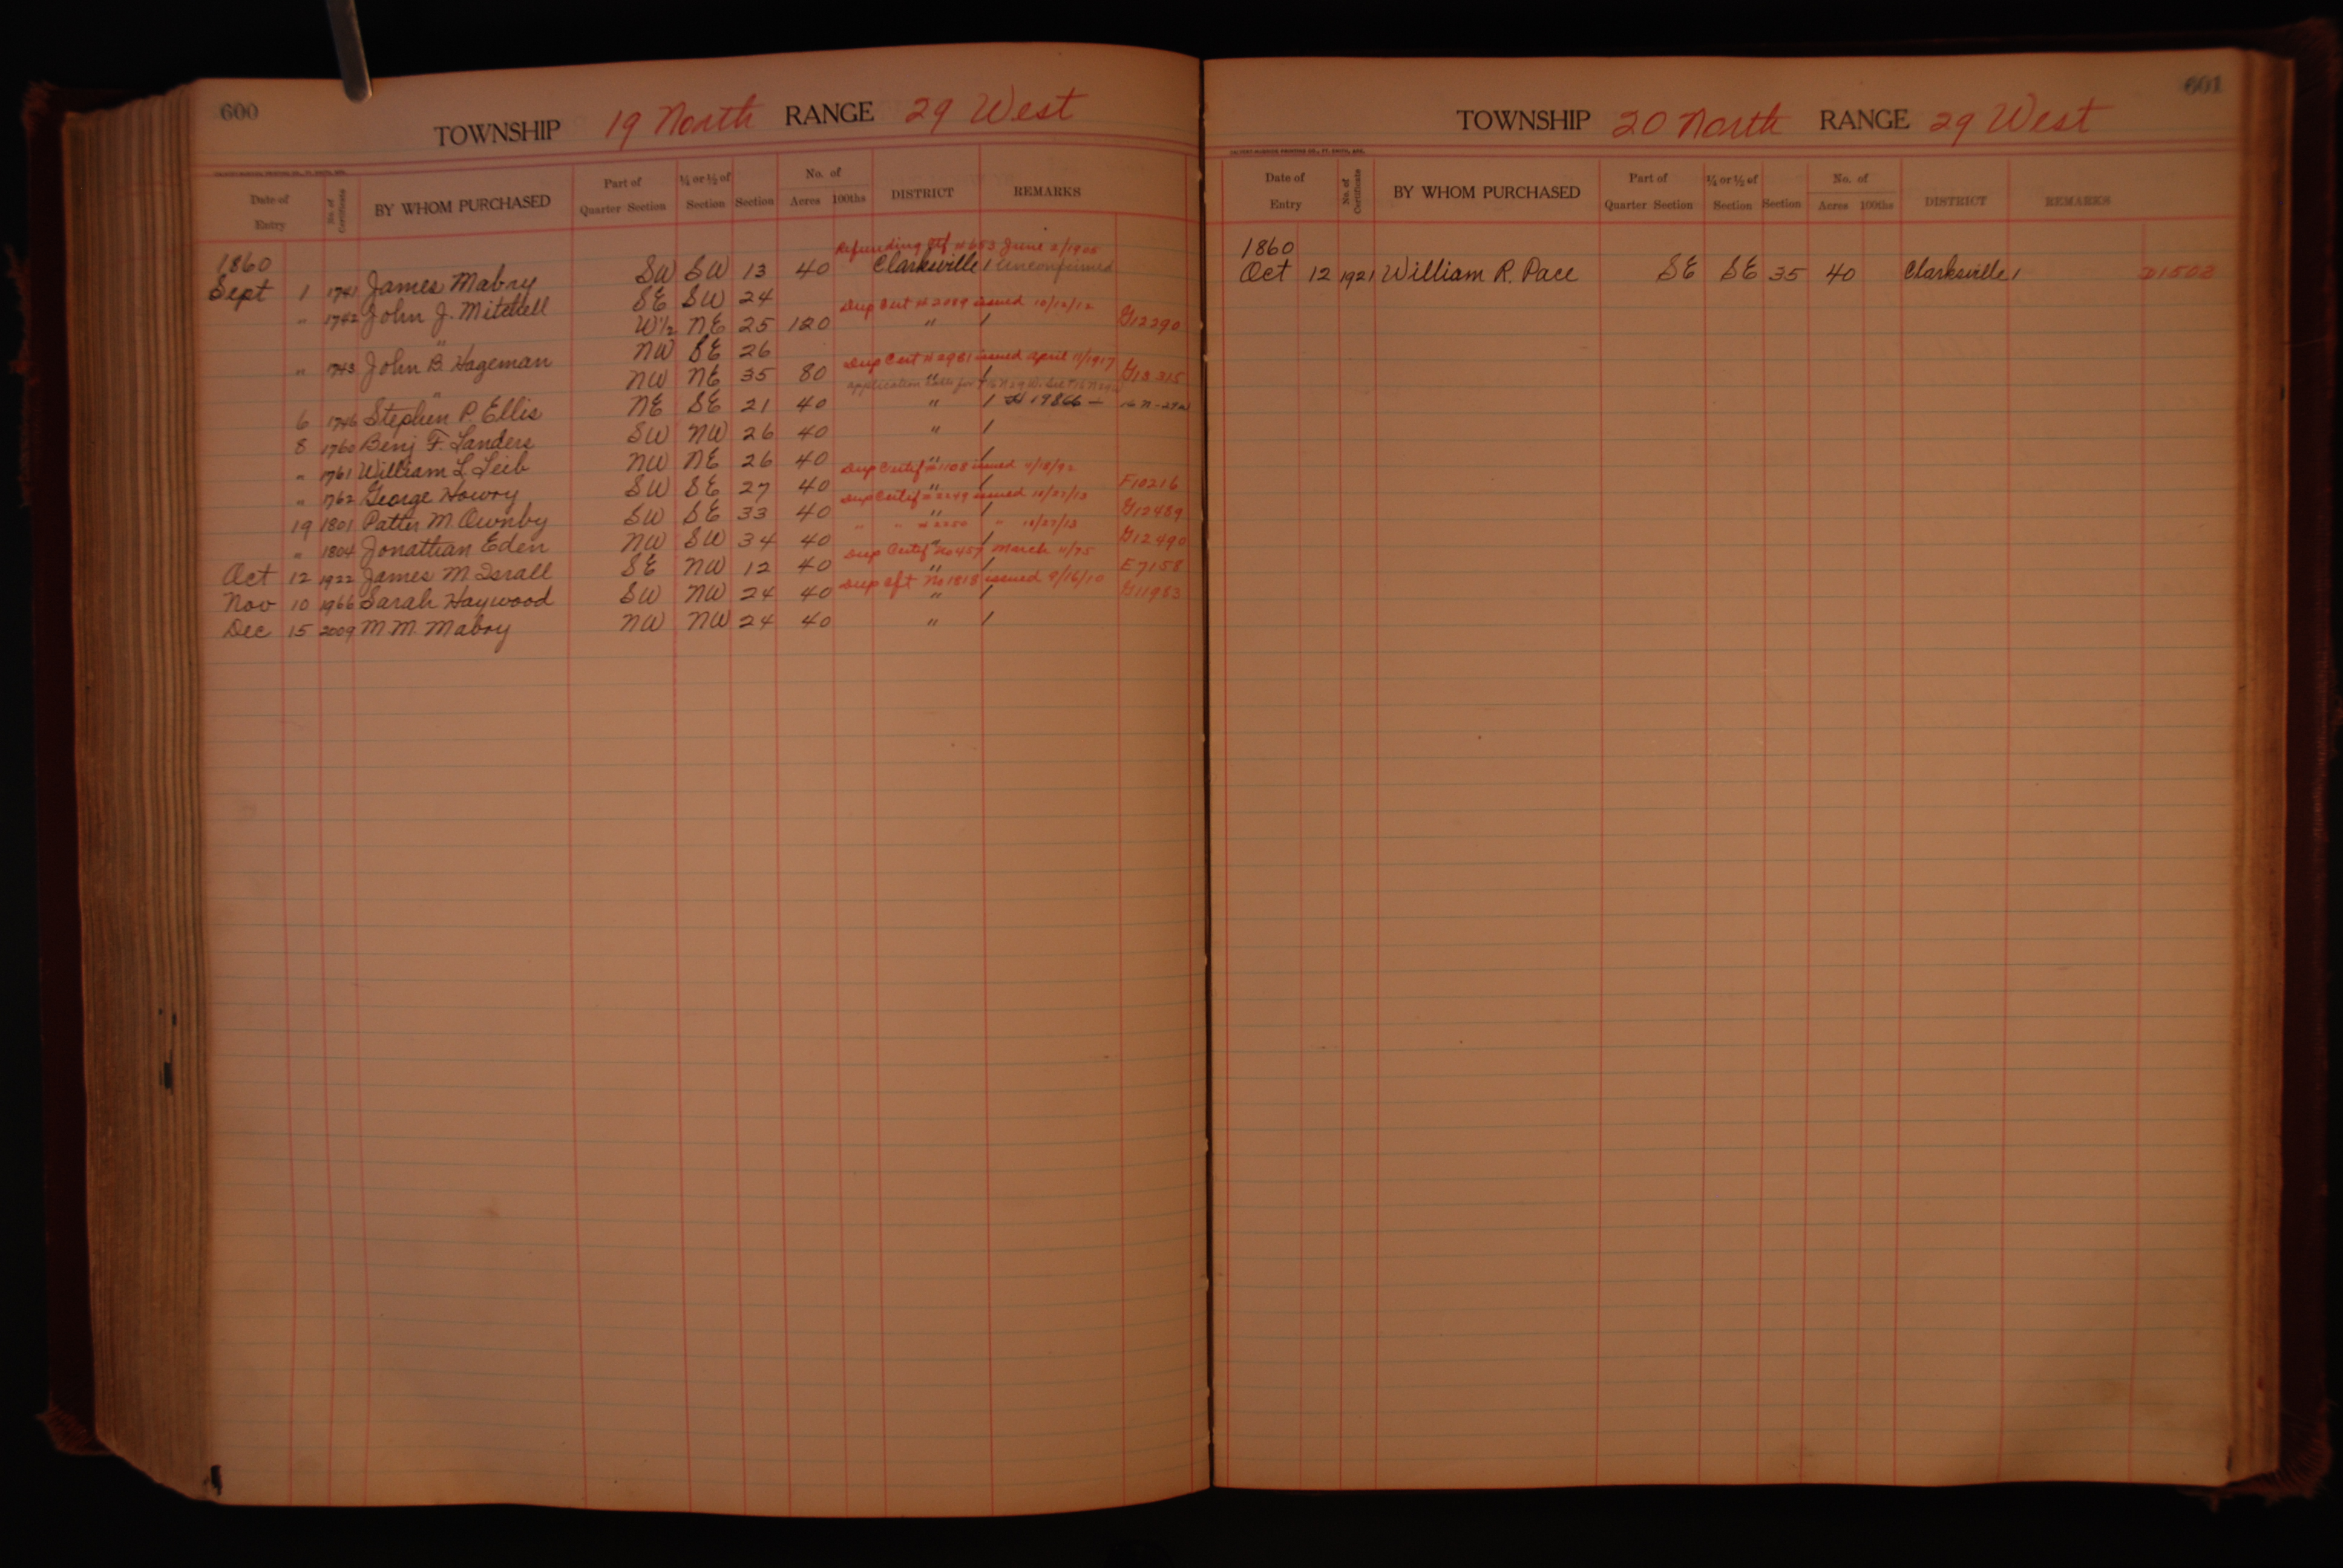 600
TOWNSHIP 19 North RANGE 29 West
Date of Entry No. of Certificate BY WHOM PURCHASED Part of Quarter Section ¼ or ½ of Section Section No. of Acres 100ths DISTRICT REMARKS
Refunding #653 June 2/1905
1860
Sept 1 1741 James Mabry SW SW 13 40 Clarksville / Unconfirmed
SE SW 24
Dup Cert #2089 issued 10/12/12
" 1742 John J. Mitchell W½ NE 25 120 " / G12290
" NW SE 26
Dup Cert #2981 issued April 11/1917
" 1743 John B. Hageman NW NE 35 80 " / G13315
application
6 1746 Stephen P. Ellis NE SE 21 40 " / # 19866 —
8 1760 Benj F. Landers SW NW 26 40 " /
" 1761 William L. Leib NW NE 26 40 " /
Dup Certif #1108 issued 11/18/92
" 1762 George Howry SW SE 27 40 " / F10216
Dup Certif #2249 issued 10/27/13
19 1801 Patter M. Ownby SW SE 33 40 " / G12489
" " #2250 " 10/27/13
" 1804 Jonathan Eden NW SW 34 40 " / G12490
Dup Certif No 457 March 11/75
Oct 12 1922 James M. Israll SE NW 12 40 " / E7158
Dup Cft No 1818 issued 8/16/10
Nov 10 1966 Sarah Haywood SW NW 24 40 " / G11983
Dec 15 2009 M. M. Mabry NW NW 24 40 " /
601
TOWNSHIP 20 North RANGE 29 West
Date of Entry No. of Certificate BY WHOM PURCHASED Part of Quarter Section ¼ or ½ of Section Section No. of Acres 100ths DISTRICT REMARKS
1860
Oct 12 1921 William R. Pace SE SE 35 40 Clarksville / D1502